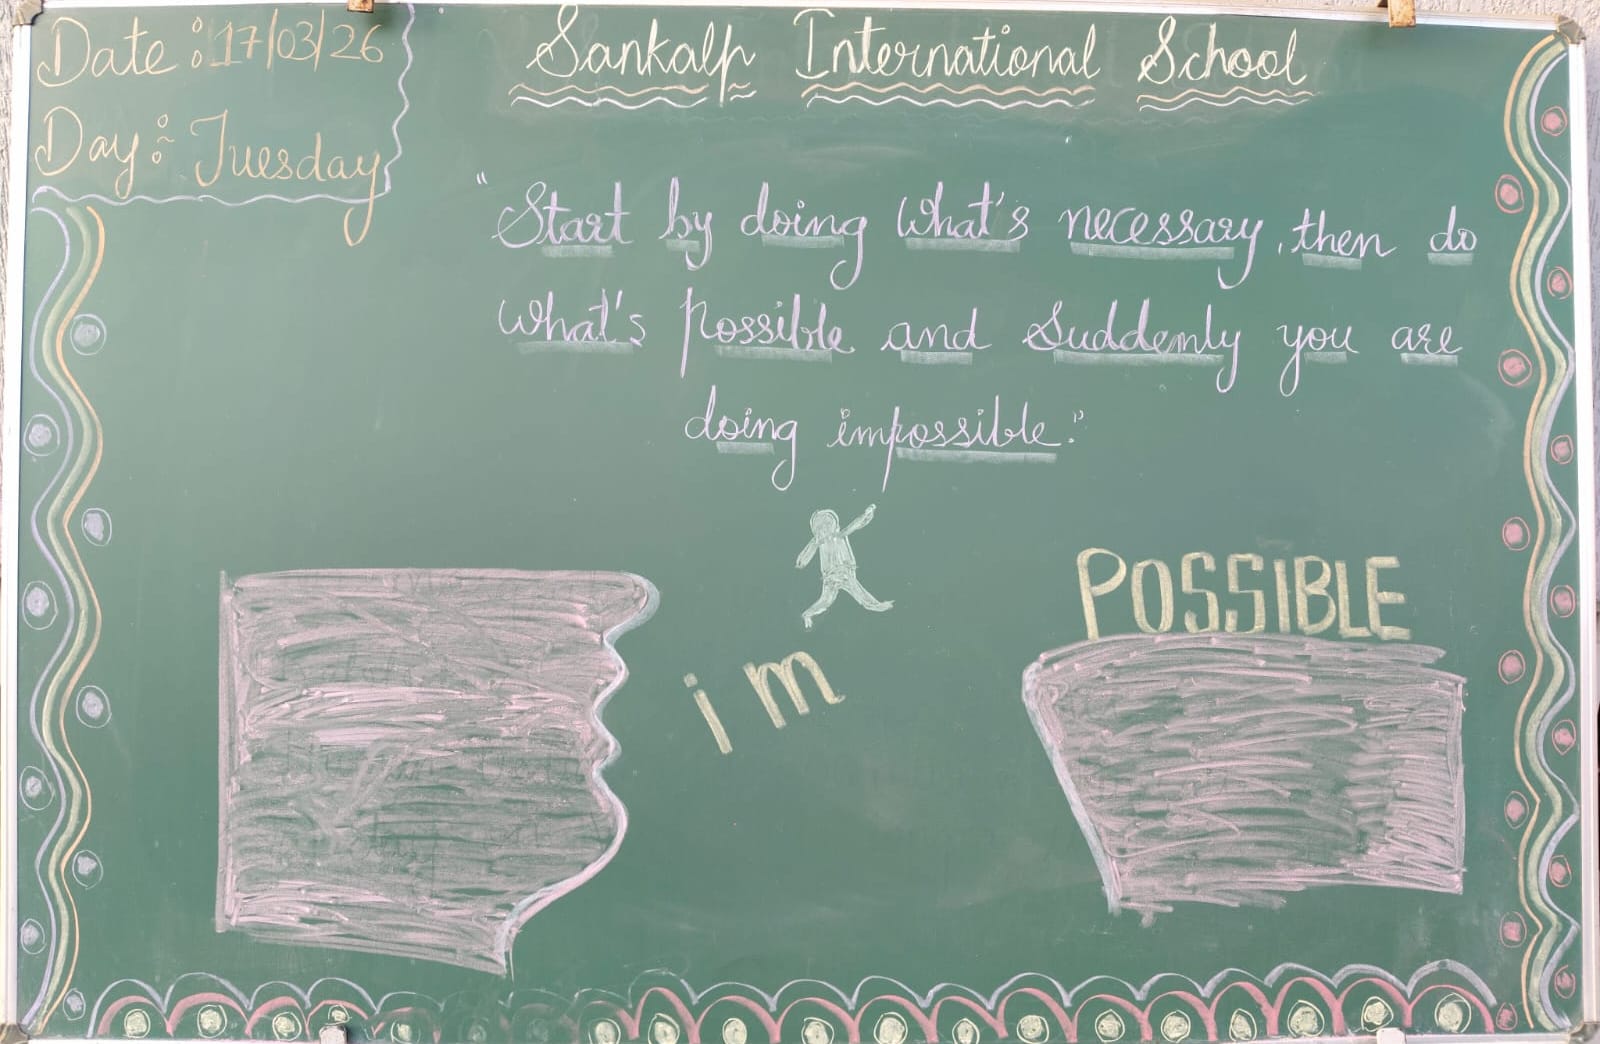 Date : 17/03/26
Day : Tuesday
Sankalp International School
"Start by doing what's necessary, then do
what's possible and suddenly you are
doing impossible."
im
POSSIBLE